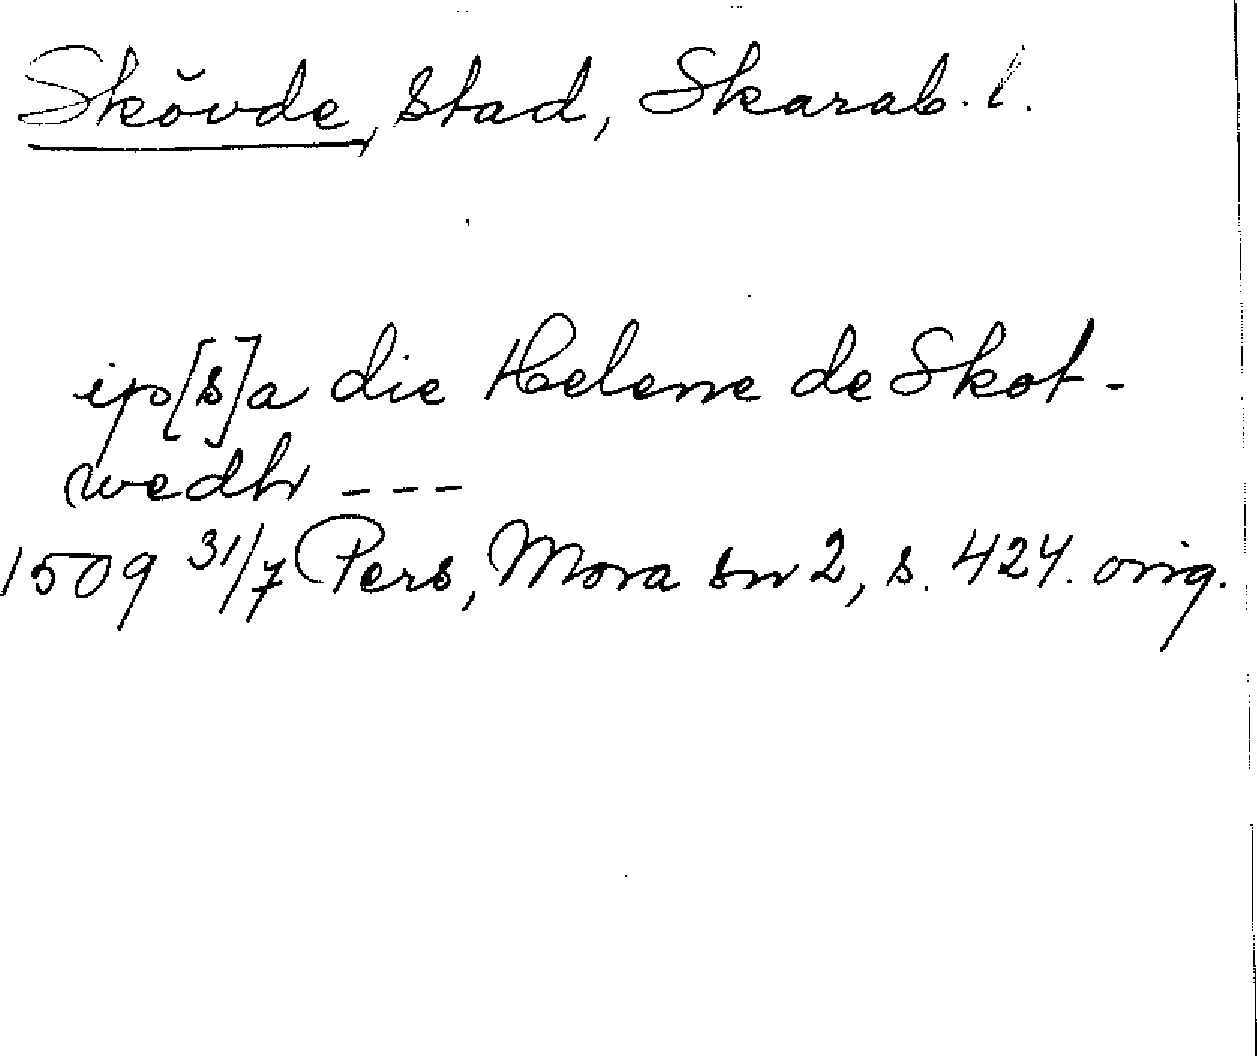 Skövde, stad, Skarab. l.
ip[s]a die Helene de Skot-
wedh ---
1509 31/7 Pers, Mora sn 2, s. 424. orig.